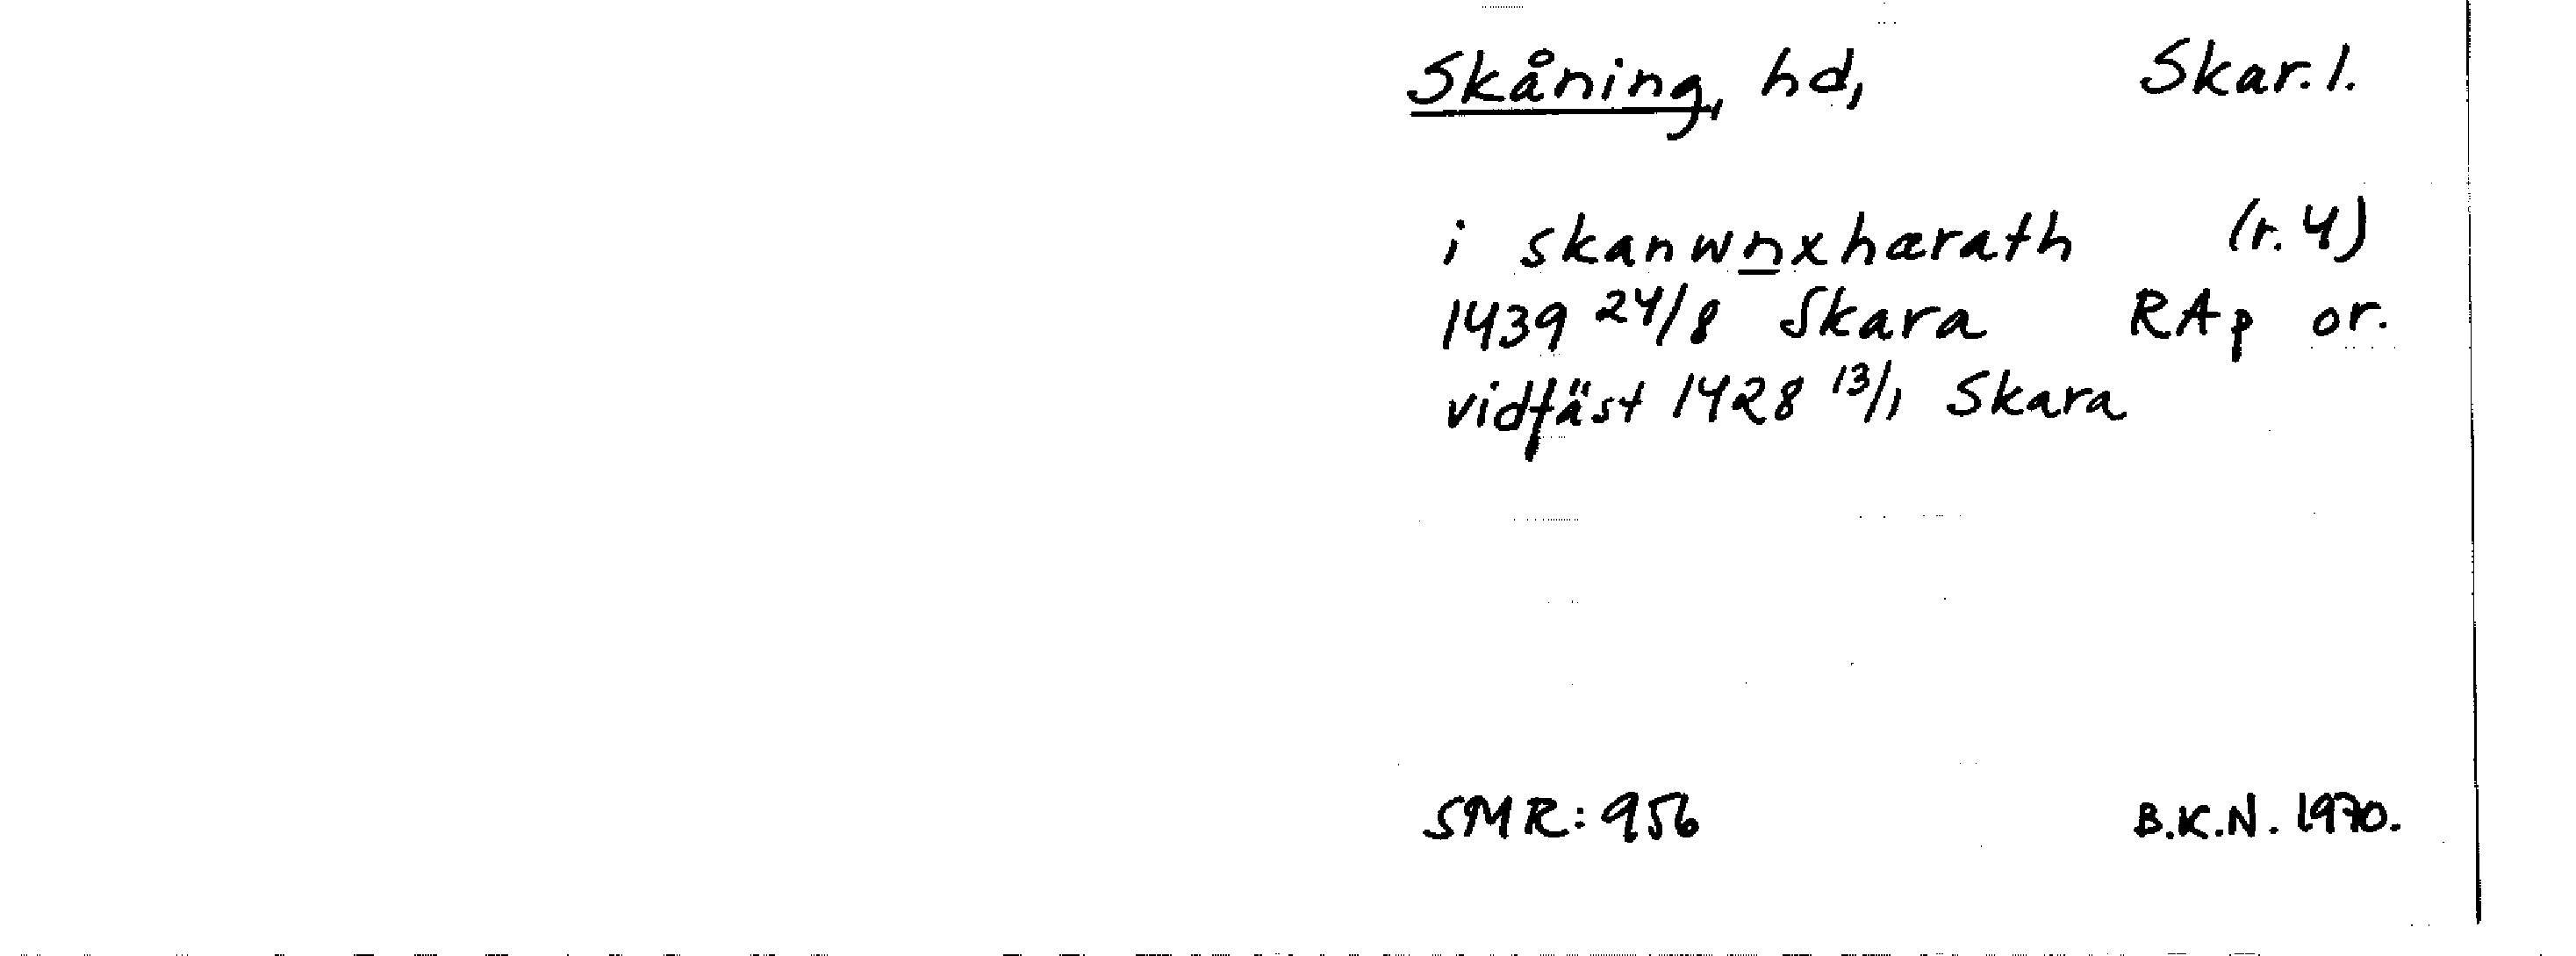 Skåning, hd, Skar. l.
i skanwnxhærath (r. 4)
1439 24/8 Skara RAp or.
vidfäst 1428 13/1 Skara
SMR: 956 B.K.N. 1970.